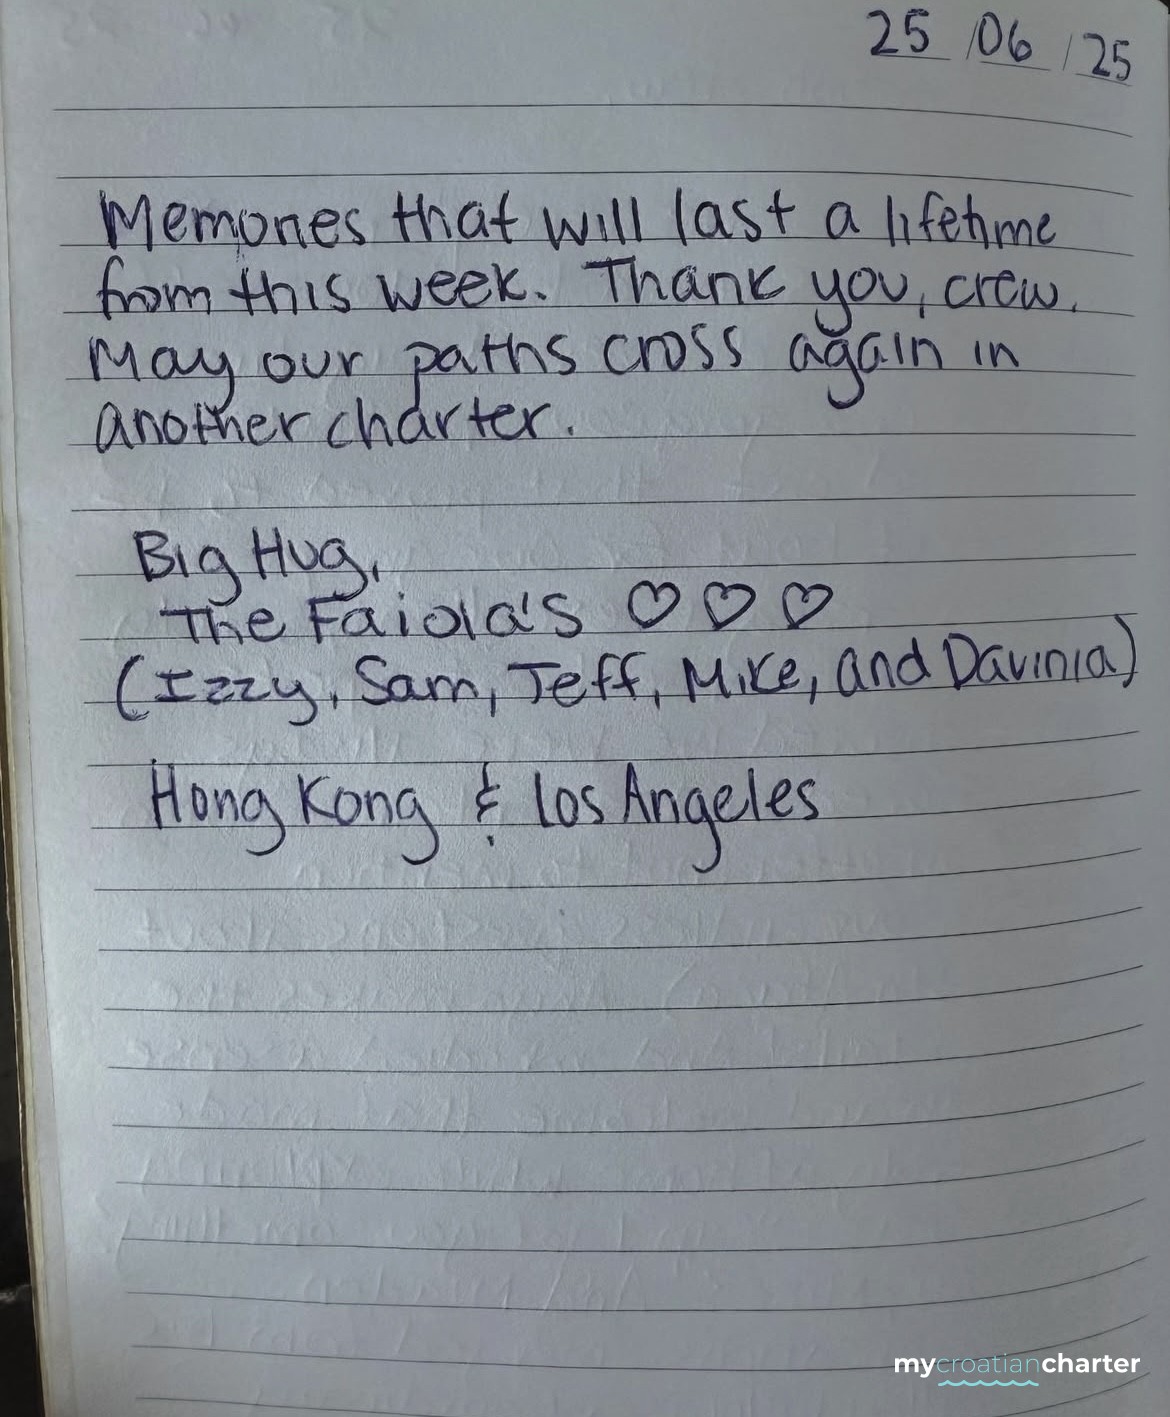 25/06/25
Memories that will last a lifetime
from this week. Thank you, crew.
May our paths cross again in
another charter.
Big Hug,
The Faiola's ♡ ♡ ♡
(Izzy, Sam, Jeff, Mike, and Davinia)
Hong Kong & Los Angeles
mycroatiancharter